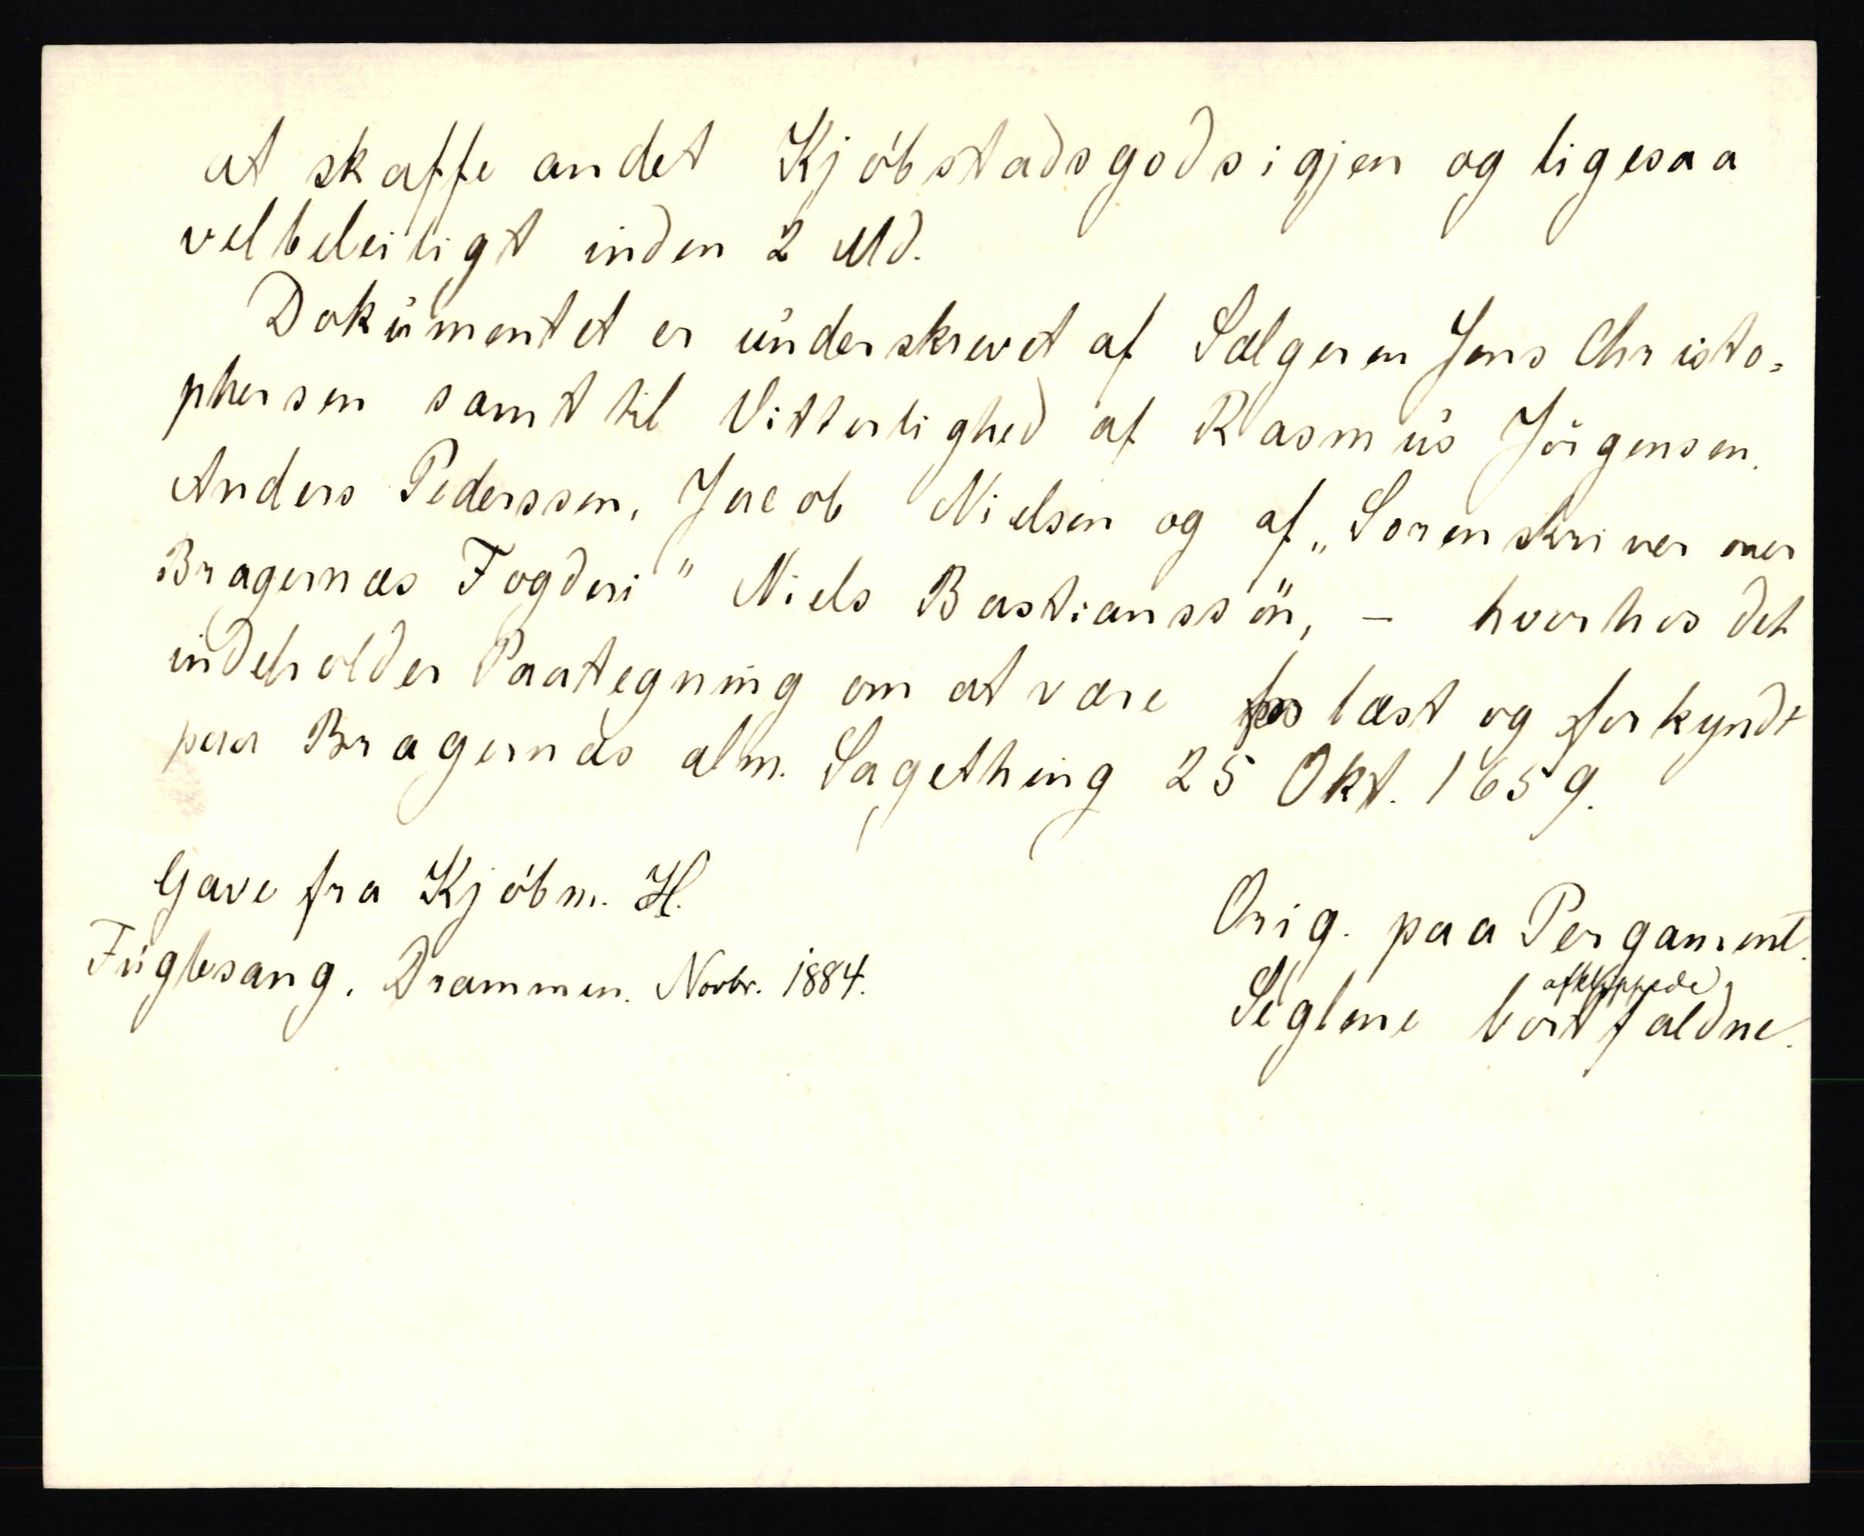 at skaffe andet Kjöbstadsgods igjen og ligesaa
velbeleiligt inden 2 Md.
Dokumentet er underskrevet af Sælgeren Jens Christo-
phersen samt til Vitterlighed af Rasmus Jörgensen.
Anders Pederssen, Jacob Nielsen og af „Sorenskriver over
Bragernæs Fogderi" Niels Bastianssön, - hvorhos det
indeholder Paategning om at være læst og forkyndt
paa Bragernæs alm. Sagething 25 Okt. 1659.
Gave fra Kjöbm. H.
Fuglesang. Drammen. Novbr. 1884.
Orig. paa Pergament.
afklippede
Seglene bortfaldne.